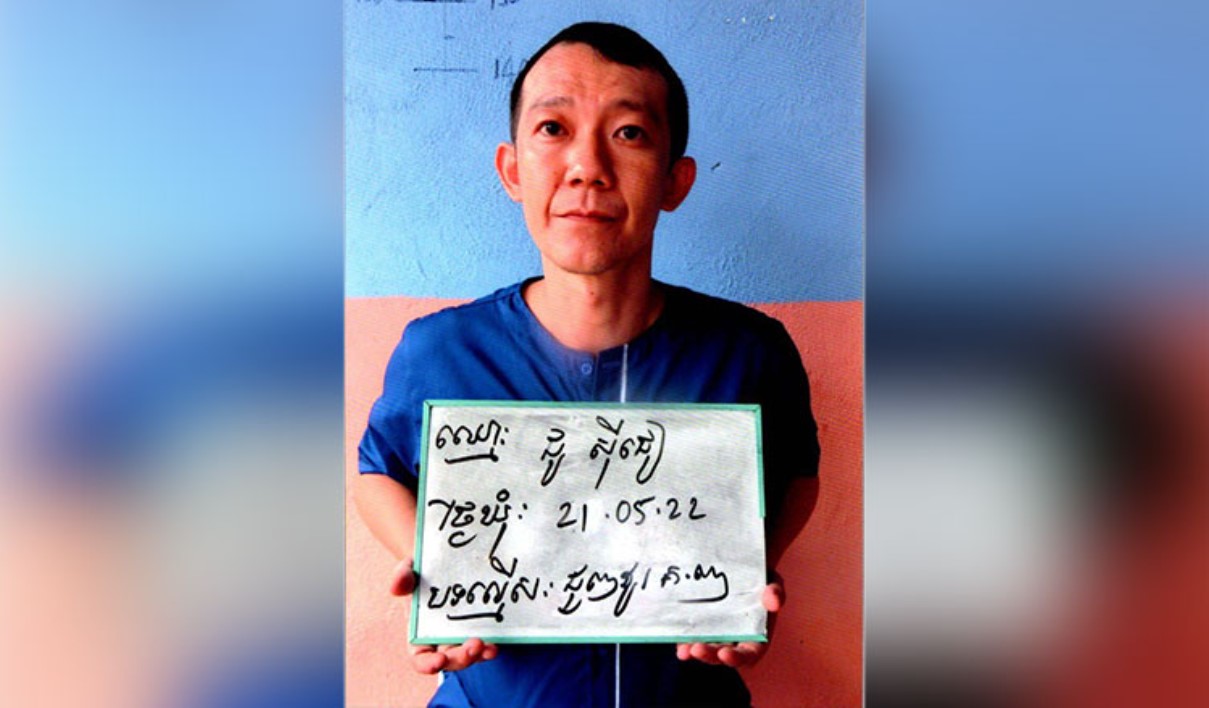 140
ឈ្មោះ ជូ ស៊ីជៀ
ថ្ងៃឃុំ: 21.05.22
បទល្មើស: ជួញដូរ គ.ញ